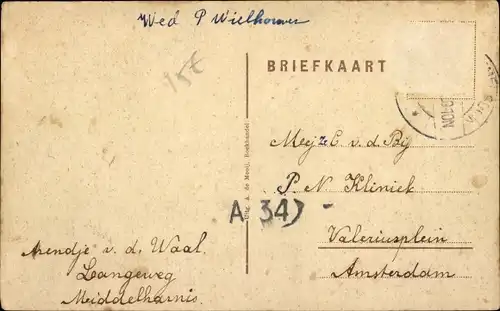 Wed P Wielhouwer
15€
BRIEFKAART
Mejz C. v. d. Bij
P. N. Kliniek
A 34
Valeriusplein
Amsterdam
Uitg. A. de Mooij, Boekhandel
Arendje v. d. Waal.
Langeweg
Middelharnis.